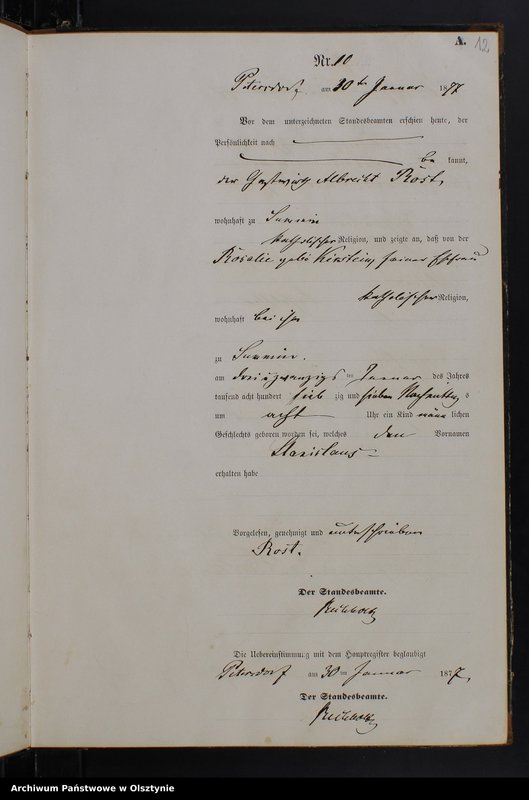 A. 12
Nr. 10
Petersdorf am 30ten Januar 1877
Vor dem unterzeichneten Standesbeamten erschien heute, der
Persönlichkeit nach
be kannt,
der Gastwirth Albrecht Rost,
wohnhaft zu
katholischer Religion, und zeigte an, daß von der
Rosalie geb. seiner Ehefrau
katholischer Religion,
wohnhaft bei ihm
zu
am drei u zwanzigs ten Januar des Jahres
tausend acht hundert sieb zig und sieben Nachmittag s
um acht Uhr ein Kind männ lichen
Geschlechts geboren worden sei, welches den Vornamen
Stanislaus
erhalten habe
Vorgelesen, genehmigt und unterschrieben
Rost.
Der Standesbeamte.
Die Uebereinstimmung mit dem Hauptregister beglaubigt
Petersdorf am 30 ten Januar 1877,
Der Standesbeamte.
Archiwum Państwowe w Olsztynie